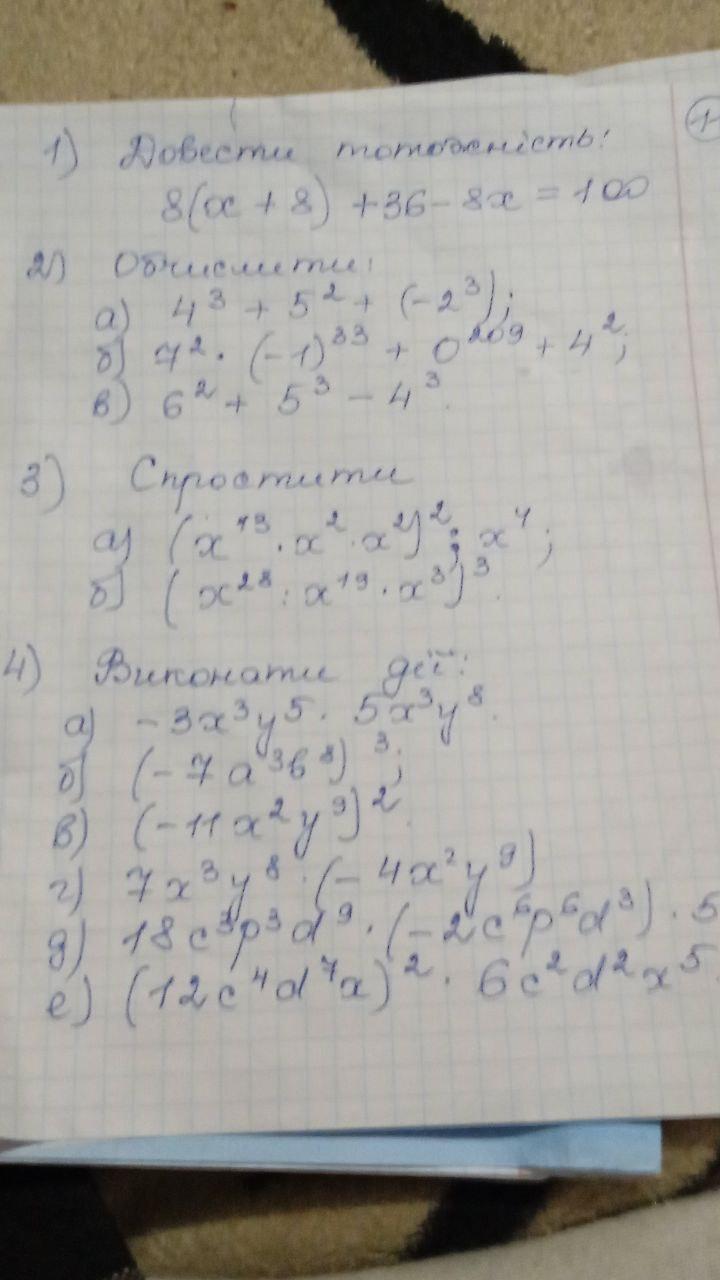 1) Довести тотожність:
8(x + 8) + 36 - 8x = 100
2) Обчислити:
а) 4³ + 5² + (-2³);
б) 7² · (-1)³³ + 0²⁰⁹ + 4²;
в) 6² + 5³ - 4³.
3) Спростити
а) (x¹³ · x² · x²)² : x⁴;
б) (x²⁸ : x¹⁹ · x³)³.
4) Виконати дії:
а) -3x³y⁵ · 5x³y⁸.
б) (-7a³b⁸)³;
в) (-11x²y⁹)².
г) 7x³y⁸ · (-4x²y⁹)
д) 18c³p³d⁹ · (-2c⁶p⁶d³) · 5
е) (12c⁴d⁷x)² · 6c²d²x⁵.